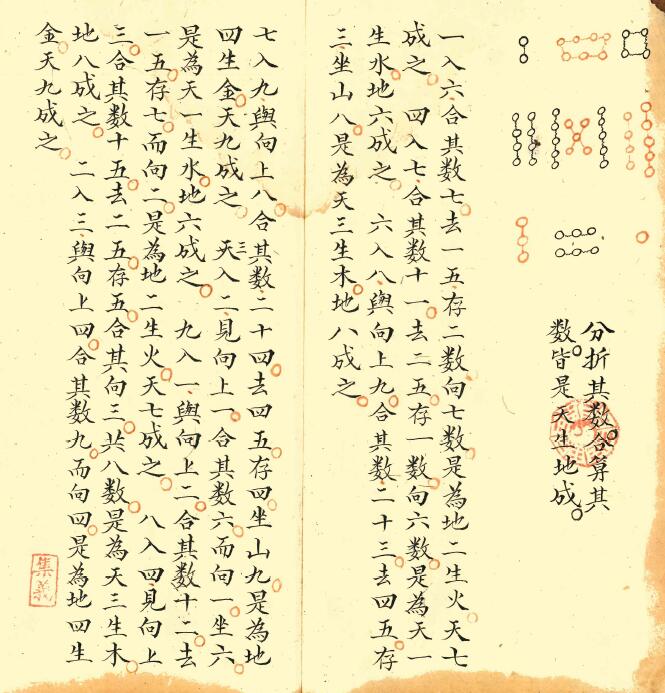 分折其数合算其
数皆是天生地成
一入六合其数七去一五存二数向七数是為地二生火天七
成之 四入七合其数十一去二五存一数向六数是為天一
生水地六成之 六入八與向上九合其数二十三去四五存
三坐山八是為天三生木地八成之
七入九與向上八合其数二十四去四五存四坐山九是為地
四生金天九成之 三天入二見向上一合其数六而向一坐六
是為天一生水地六成之 九入一與向上二合其数十二去
一五存七而向二是為地二生火天七成之 八入四見向上
三合其数十五去二五存五合其向三共八数是為天三生木
地八成之 二入三與向上四合其数九而向四是為地四生
金天九成之
集義